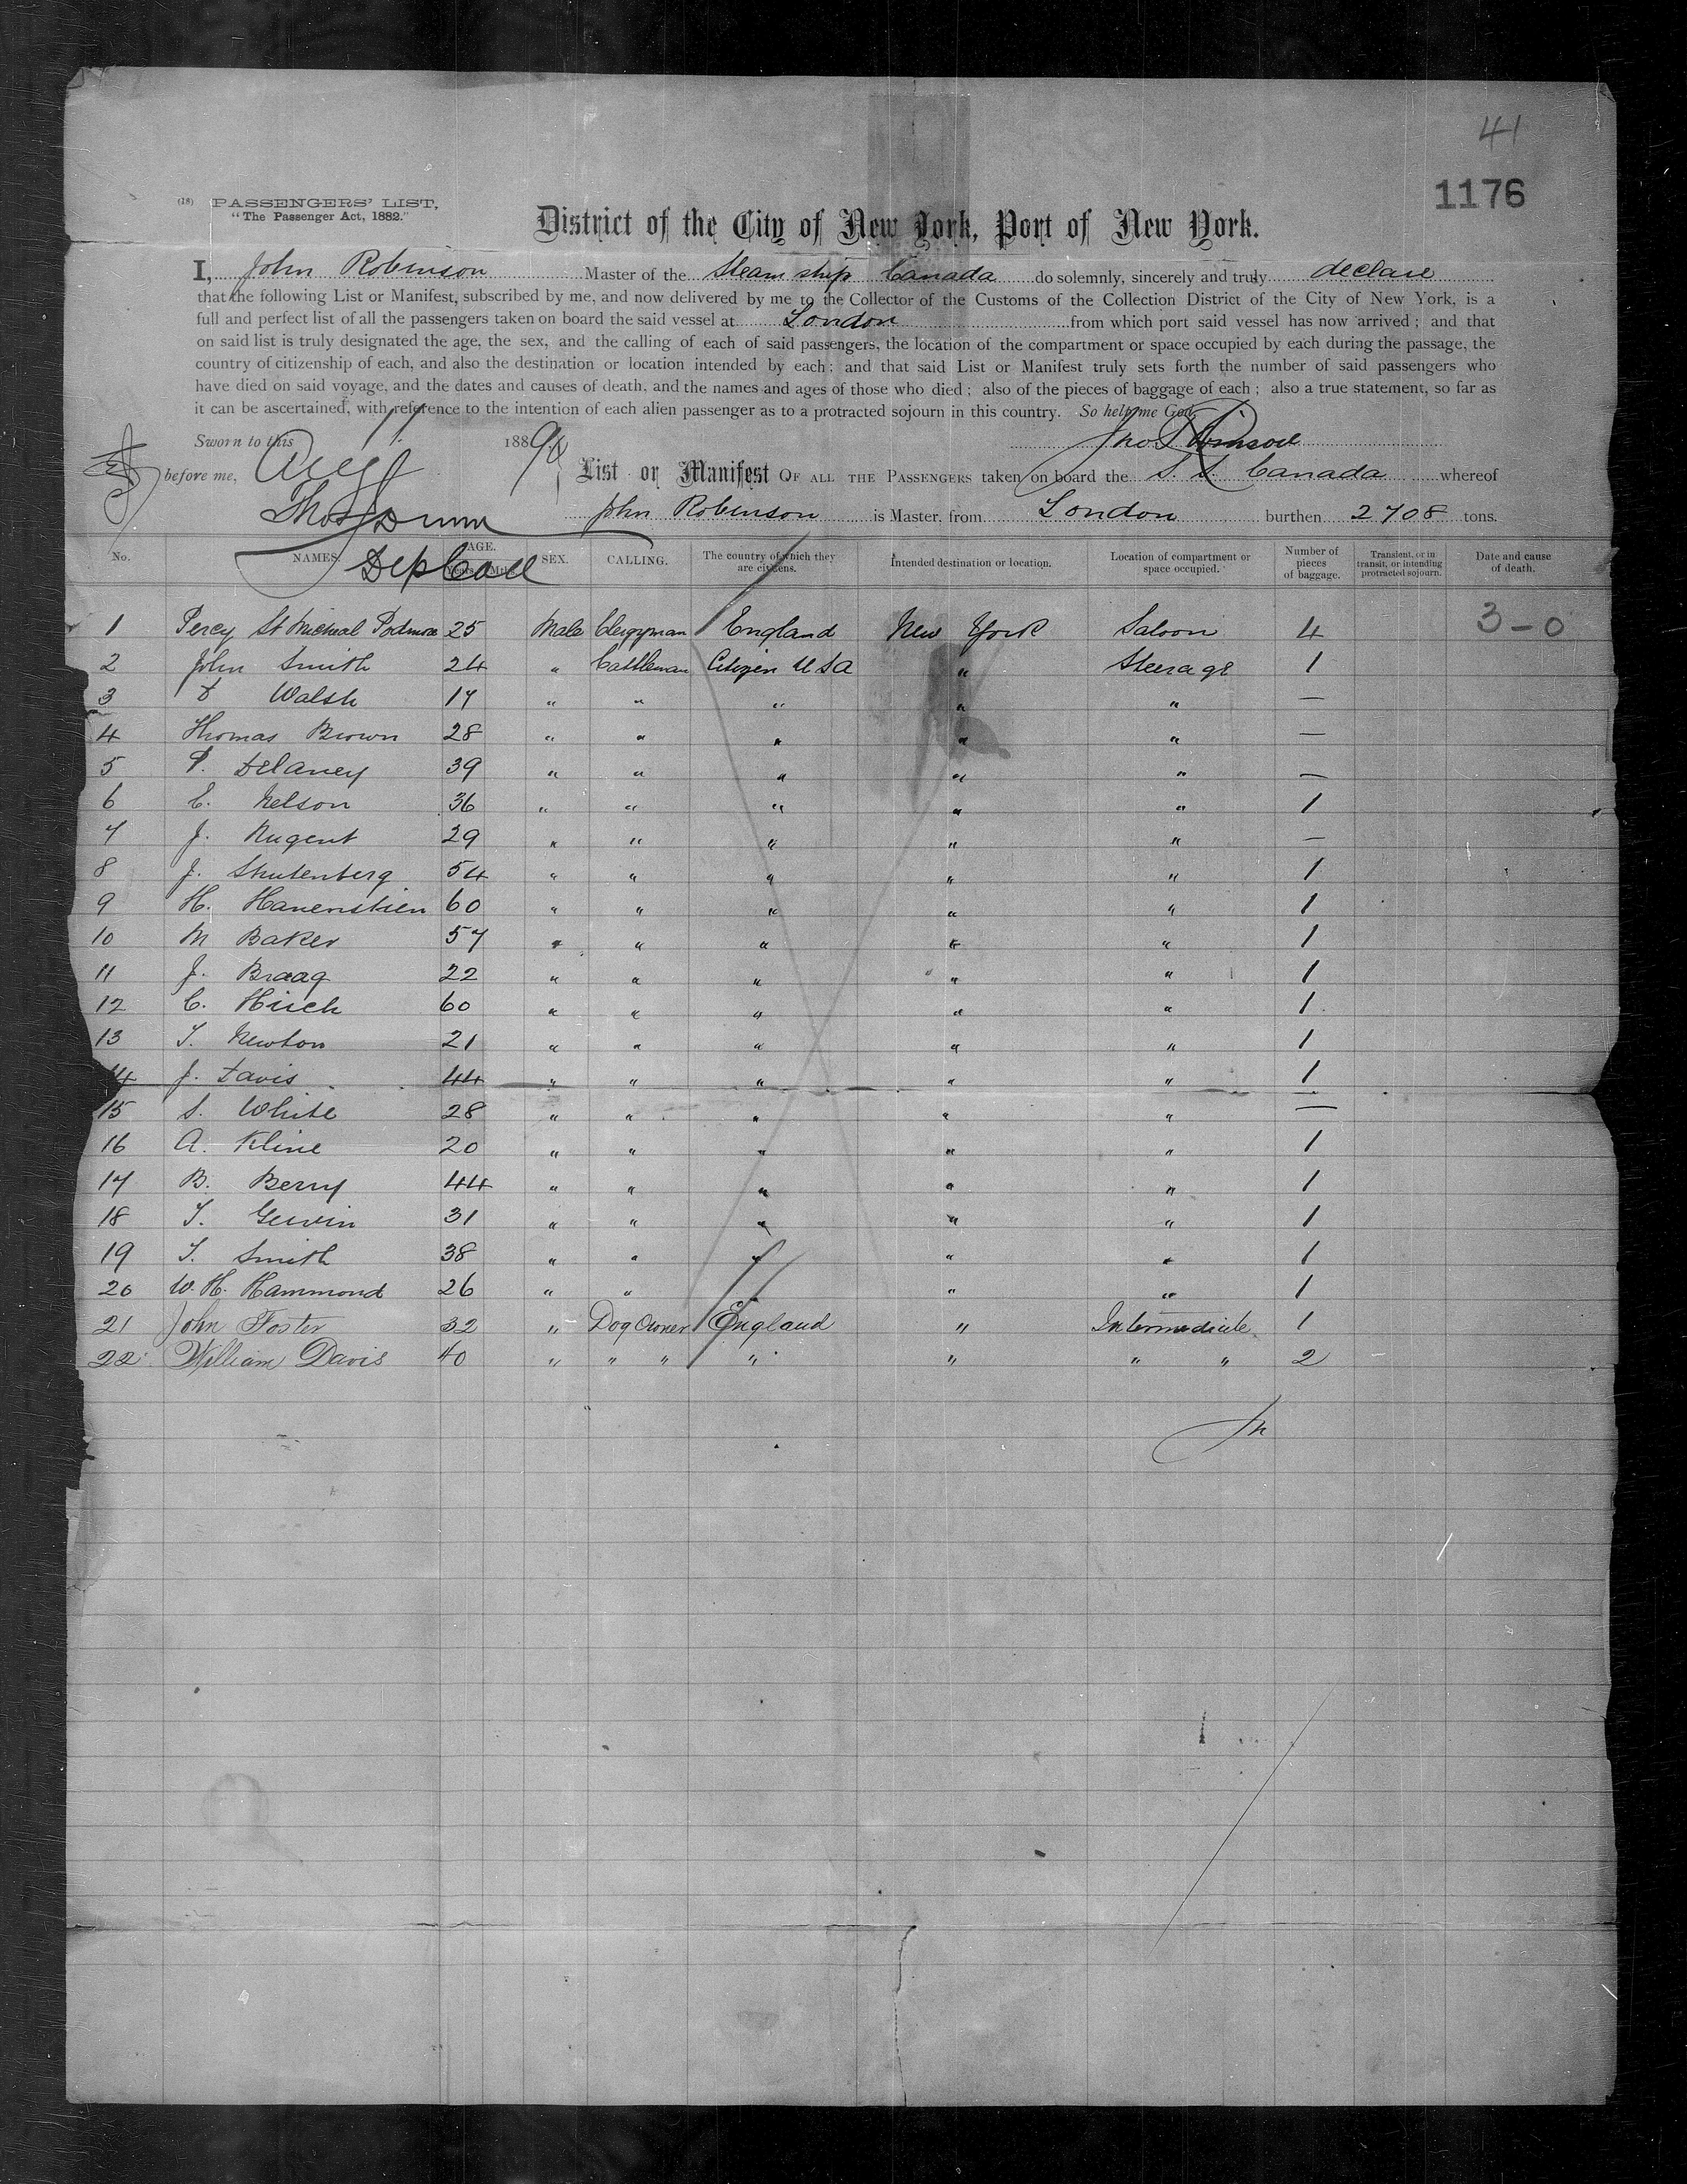 41
1176
(18) PASSENGERS' LIST,
"The Passenger Act, 1882."
District of the City of New York, Port of New York.
I, John Robinson Master of the Steam ship Canada do solemnly, sincerely and truly declare
that the following List or Manifest, subscribed by me, and now delivered by me to the Collector of the Customs of the Collection District of the City of New York, is a
full and perfect list of all the passengers taken on board the said vessel at London from which port said vessel has now arrived; and that
on said list is truly designated the age, the sex, and the calling of each of said passengers, the location of the compartment or space occupied by each during the passage, the
country of citizenship of each, and also the destination or location intended by each; and that said List or Manifest truly sets forth the number of said passengers who
have died on said voyage, and the dates and causes of death, and the names and ages of those who died; also of the pieces of baggage of each; also a true statement, so far as
it can be ascertained, with reference to the intention of each alien passenger as to a protracted sojourn in this country. So help me God.
Sworn to this 11 1890 Jno Robinson
before me, Aug List or Manifest OF ALL THE PASSENGERS taken on board the S. S. Canada whereof
Thos Dunn John Robinson is Master, from London burthen 2708 tons.
Dep Coll
No. NAMES. AGE. Years. Mths. SEX. CALLING. The country of which they are citizens. Intended destination or location. Location of compartment or space occupied. Number of pieces of baggage. Transient, or in transit, or intending protracted sojourn. Date and cause of death.
1 Percy St Micheal Podmore 25 Male Clergyman England New York Saloon 4 3-0
2 John Smith 24 " Cattleman Citizen USA " Steerage 1
3 Walsh 17 " " " " " —
4 Thomas Brown 28 " " " " " —
5 P. Delaney 39 " " " " " —
6 E. Nelson 36 " " " " " 1
7 J. Nugent 29 " " " " " —
8 J. Shutenberg 54 " " " " " 1
9 H. Hanenstien 60 " " " " " 1
10 M Baker 57 " " " " " 1
11 J. Braag 22 " " " " " 1
12 C. Hirch 60 " " " " " 1
13 T. Newton 21 " " " " " 1
14 J. Davis 44 " " " " " 1
15 S. White 28 " " " " " —
16 A. Kline 20 " " " " " 1
17 B. Berry 44 " " " " " 1
18 T. 31 " " " " " 1
19 T. Smith 38 " " " " " 1
20 W. H. Hammond 26 " " " " " 1
21 John Foster 32 " Dog Owner England " Intermediate 1
22 William Davis 40 " " " " " " " 2